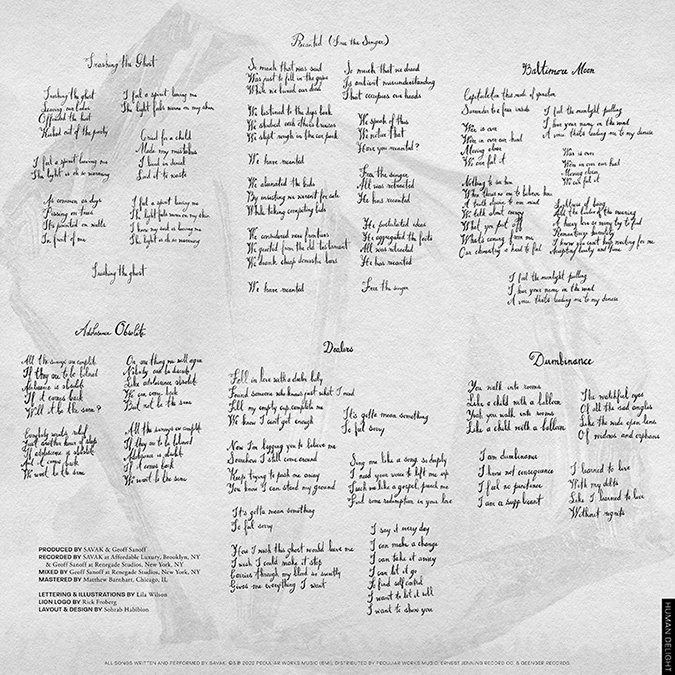 Trashing the Ghost
Trashing the ghost
Leaving our bodies
Offended the host
Walked out of the party
I feel a spirit leaving me
The light is oh so warming
As common as days
Passing on trees
It's painted on walls
In front of me
I feel a spirit leaving me
The light falls warm on my skin
Cruel for a child
Made my mistakes
I lived in doubt
Laid it to waste
I feel a spirit leaving me
The light falls warm on my skin
I know my soul is leaving me
The light is oh so warming
Trashing the ghost
Recanted (Free the Singer)
So much that was said
Was just to fill in the gaps
While we turned our
We listened to the dogs bark
We studied with
We slept rough in the car park
We have recanted
We alienated the kids
By
While taking computing bids
We considered new
We quoted from the old testament
We drank cheap domestic beers
We have recanted
So much that we
Is ambient misunderstanding
That occupies our heads
We speak of this
We notice that
Have you recanted?
Free the singer
All was retracted
He has recanted
He postulated ideas
He aggregated the facts
All was retracted
He has recanted
Free the singer
Baltimore Moon
Capitulate this mode of
Surrender to a free inside
War is over
War in over our head
Moving closer
We can feel it
Nothing to see here
When there's no one to believe here
A truth dying to our mind
We talk about
What you put off
What's coming from me
Our chemistry is hard to find
I feel the moonlight pulling
I hear your name on the wind
A voice that's leading me to my demise
War is over
War in over our head
Moving closer
We can feel it
All the
Romanticize humidity
I know you can't keep waiting for me
I feel the moonlight pulling
I hear your name on the wind
A voice that's leading me to my demise
Adolescence Obsolete
All the surveys are complete
If they are to be believed
Adolescence is obsolete
If it comes back
Will it be the same?
Everybody needs relief
Just another hour of sleep
If adolescence is obsolete
And it comes back
We won't be the same
On one thing we will agree
Nobody can be discrete
Like adolescence obsolete
We can come back
But not be the same
All the surveys are complete
If they are to be believed
Adolescence is obsolete
If it comes back
We won't be the same
Dealers
Fell in love with a dealer lately
Found someone who knows just what I need
Fill my empty cup, complete me
We know I can't get enough
Now I'm begging you to believe me
Somehow I still come around
Keep trying to push me away
You know I can stand my ground
It's gotta mean something
To feel sorry
How I wish this ghost would leave me
I wish I could make it stop
Courses through my blood so sweetly
Gives me everything I want
It's gotta mean something
To feel sorry
Sing me like a song so deeply
I need your voice to lift me up
Teach me like a gospel, preach me
Find some redemption in your love
I say it every day
I can make a change
I can take it away
I can let it go
To find self control
I want to let it roll
I want to show you
Dumbinance
You walk into rooms
Like a child with a balloon
Yeah you walk into rooms
Like a child with a balloon
I am dumbinance
I know not consequence
I feel no penitence
I am a supplicant
The watchful eyes
Of all the sad angles
Like the wide open lens
Of widows and orphans
I learned to live
With my debts
Like I learned to love
Without regrets
PRODUCED BY SAVAK & Geoff Sanoff
RECORDED BY SAVAK at Affordable Luxury, Brooklyn, NY
& Geoff Sanoff at Renegade Studios, New York, NY
MIXED BY Geoff Sanoff at Renegade Studios, New York, NY
MASTERED BY Matthew Barnhart, Chicago, IL
LETTERING & ILLUSTRATIONS BY Lila Wilson
LION LOGO BY Rick Froberg
LAYOUT & DESIGN BY Sohrab Habibion
ALL SONGS WRITTEN AND PERFORMED BY SAVAK. ©℗ 2022 PECULIAR WORKS MUSIC (BMI). DISTRIBUTED BY PECULIAR WORKS MUSIC, ERNEST JENNING RECORD CO. & GEENGER RECORDS.
HUMAN DELIGHT